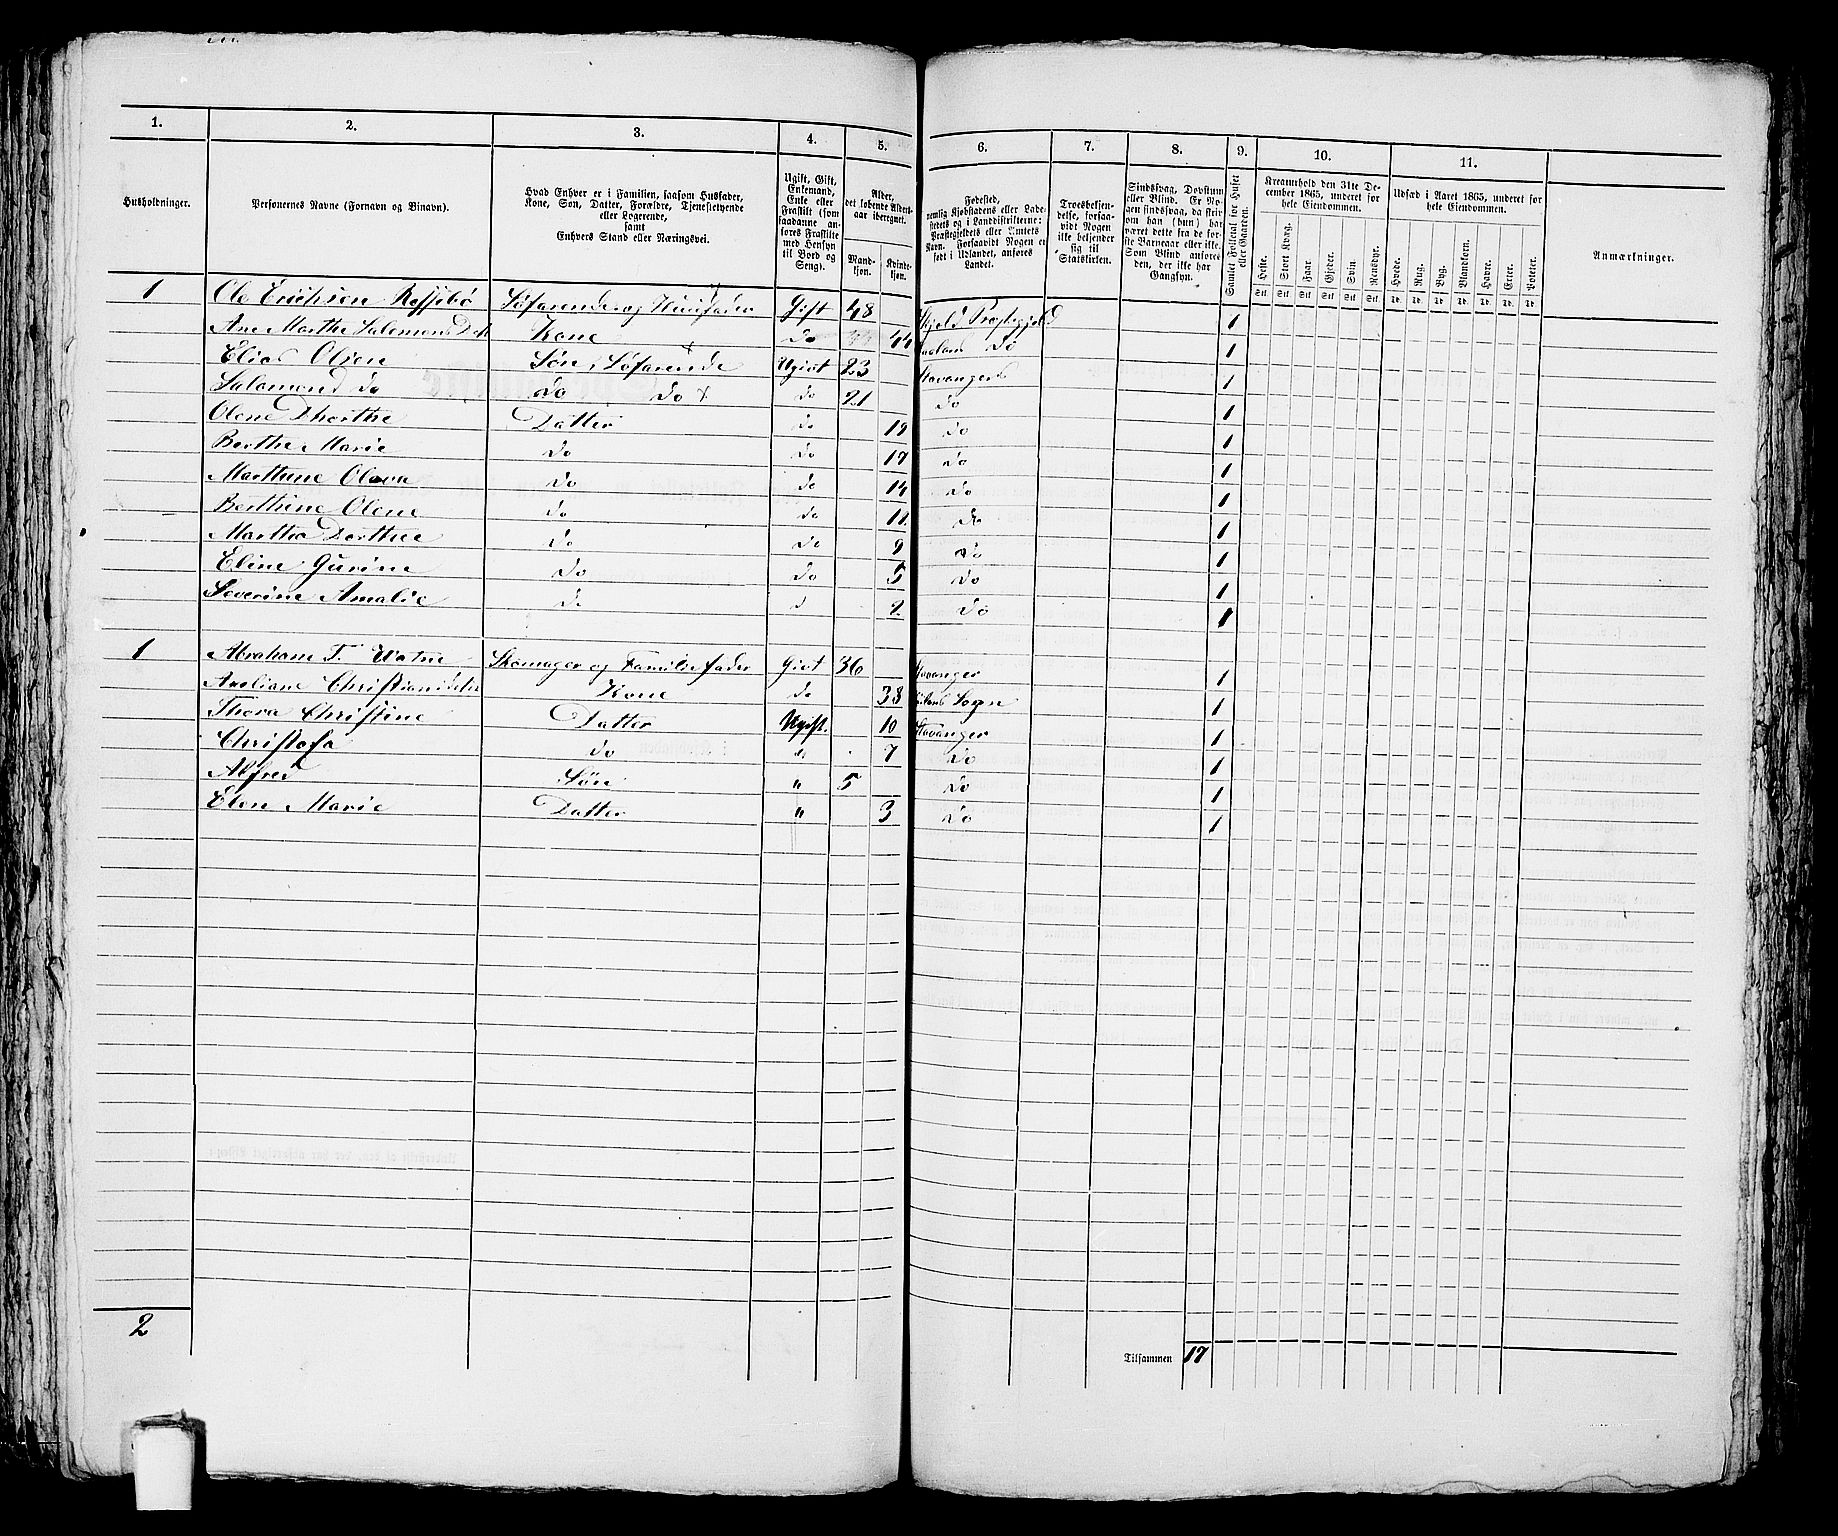 1. 2. 3. 4. 5. 6. 7. 8. 9. 10. 11.
Husholdninger. Personernes Navne (Fornavn og Binavn). Hvad Enhver er i Familien, saasom Husfader, Kone, Søn, Datter, Forældre, Tjenestetyende eller Logerende, samt Enhvers Stand eller Næringsvei. Ugift, Gift, Enkemand, Enke eller Fraskilt (som saadanne anføres Fraskilte med Hensyn til Bord og Seng). Alder, det løbende Aldersaar iberegnet. Mandkjøn. Kvindekjøn. Fødested, nemlig Kjøbstadens eller Ladestedets og i Landdistrikterne: Præstegjeldets eller Amtets Navn. Forsaavidt Nogen er født i Udlandet, anføres Landet. Troesbekjendelse, forsaavidt Nogen ikke bekjender sig til Statskirken. Sindssvag, Døvstum eller Blind. Er Nogen sindssvag, da skriver man han (hun) har været dette fra de første Barneaar eller ikke. Som Blind anføres den, der ikke har Gangsyn. Samlet Folketal for Huset eller Gaarden. Kreaturhold den 31te December 1865, underet for hele Eiendommen. Heste. Stort Kvæg. Faar. Gjeder. Svin. Rensdyr. Udsæd i Aaret 1865, underet for hele Eiendommen. Hvede. Rug. Byg. Blandkorn. Havre. Erter. Poteter. Anmærkninger.
1 Ole Erichsen Søfarende og Huusfader Gift 48 Skjold Præstegjeld 1
Ane Marthe Salomons Dtr Kone do 44 do 1
Elias Olsen Søn, Søfarende Ugivt 23 Stavanger 1
Salomond do do do + do 21 do 1
Olene Dhorthe Datter do 19 do 1
Berthe Marie do do 17 do 1
Marthine Olava do do 14 do 1
Berthine Olene do do 11 do 1
Martha Dorthee do do 9 do 1
Eline Gurine do do 5 do 1
Severine Amalie do d 2 do 1
1 Abraham T. Watne Skomager og Familiefader Givt 36 Stavanger 1
Axeliane Christiansdatter Kone do 38 Sogn 1
Thora Christine Datter Ugift. 10 Stavanger 1
Christofa do do 7 do 1
Alfred Søn " 5 do 1
Elen Marie Datter " 3 do 1
2 Tilsammen 17